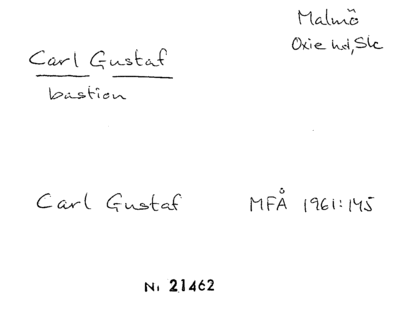 Malmö
Oxie hd, Sk
Carl Gustaf
bastion
Carl Gustaf MFÅ 1961:145
Ni 21462